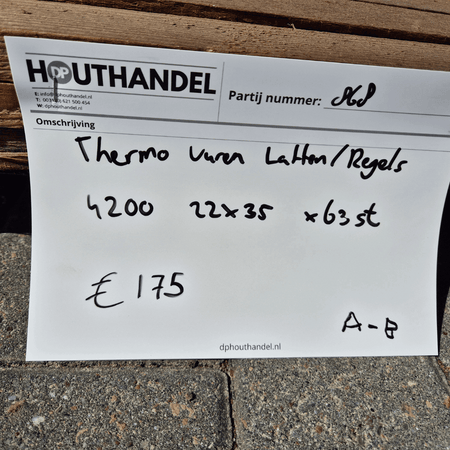 HOUTHANDEL
DP
E: info@dphouthandel.nl
T: 0031(0) 621 500 454
W: dphouthandel.nl
Partij nummer:
Omschrijving
Thermo Vuren Latten/Regels
4200 22x35 x63st
€ 175
A-B
dphouthandel.nl